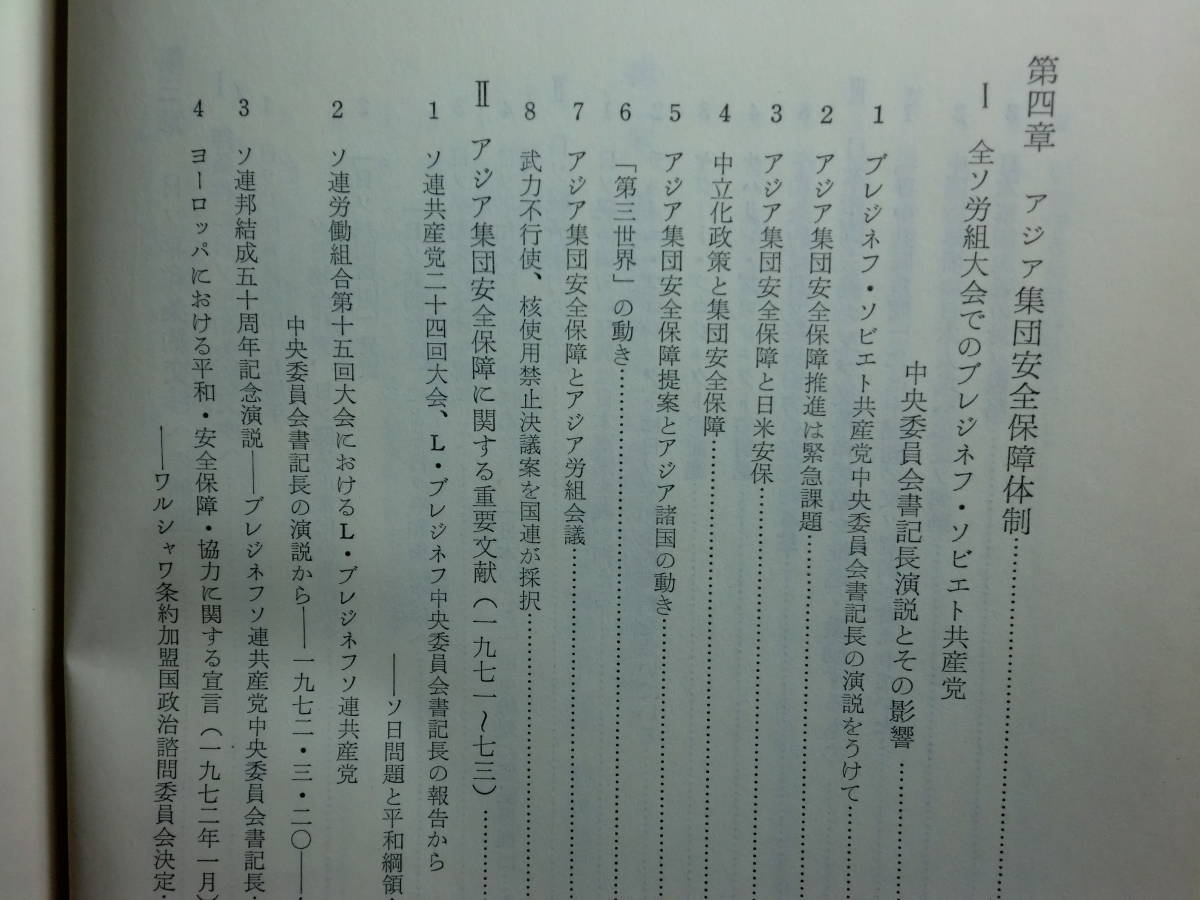 第四章　アジア集団安全保障体制……………
Ⅰ　全ソ労組大会でのブレジネフ・ソビエト共産党
中央委員会書記長演説とその影響……………
1　ブレジネフ・ソビエト共産党中央委員会書記長の演説をうけて……………
2　アジア集団安全保障推進は緊急課題……………
3　アジア集団安全保障と日米安保……………
4　中立化政策と集団安全保障……………
5　アジア集団安全保障提案とアジア諸国の動き……………
6　「第三世界」の動き……………
7　アジア集団安全保障とアジア労組会議……………
8　武力不行使、核使用禁止決議案を国連が採択……………
Ⅱ　アジア集団安全保障に関する重要文献（一九七一～七三）……………
1　ソ連共産党二十四回大会、L・ブレジネフ中央委員会書記長の報告から
――ソ日問題と平和綱領・
2　ソ連労働組合第十五回大会におけるL・ブレジネフソ連共産党
中央委員会書記長の演説から――一九七二・三・二〇――
3　ソ連邦結成五十周年記念演説――ブレジネフソ連共産党中央委員会書記長・
4　ヨーロッパにおける平和・安全保障・協力に関する宣言（一九七二年一月）
――ワルシャワ条約加盟国政治諮問委員会決定・